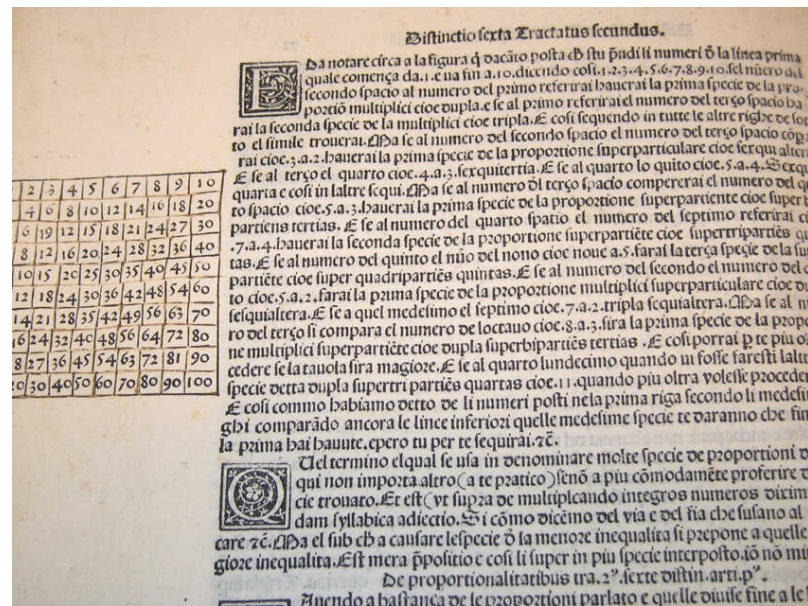 Distinctio sexta Tractatus secundus.
EDa notare circa a la figura q̄ dacāto posta cħ stu p̄ndi li numeri ō la linea prima
quale comença da.1.e ua fin a.10.dicendo cosi.1.2.3.4.5.6.7.8.9.10.sel nūero del
secondo spacio al numero del primo referirai hauerai la prima specie de la pro-
portiō multiplici cioe dupla.e se al primo referirai el numero del terço spacio ha
rai la seconda specie de la multiplici cioe tripla.E cosi sequendo in tutte le altre righe de sot
to el simile trouerai.Ma se al numero del secondo spacio el numero del terço spacio cōp
rai cioe.3.a.2.hauerai la prima specie de la proportione superparticulare cioe sexqui alter
E se al terço el quarto cioe.4.a.3.sexquitertia.E se al quarto lo quīto cioe.5.a.4.Sexqui
quarta e cosi in laltre sequi.Ma se al numero dl terço spacio compererai el numero del q
to spacio cioe.5.a.3.hauerai la prima specie de la proportione superpartiente cioe superb
partiens tertias.E se al numero del quarto spatio el numero del septimo referirai c
.7.a.4.hauerai la seconda specie de la proportione superpartiēte cioe supertripartiēs q
tas.E se al numero del quinto el nūo del nono cioe noue a.5.farai la terça specie de la su
partiēte cioe super quadripartiēs quintas.E se al numero del secondo el numero del
to cioe.5.a.2.farai la prima specie de la proportione multiplici superparticulare cioe du
sesquialtera.E se a quel medesimo el septimo cioe.7.a.2.tripla sequialtera.Ma se al n
ro del terço si compara el numero de loctauo cioe.8.a.3.sira la prima specie de la propo
ne multiplici superpartiēte cioe dupla superbipartiēs tertias .E cosi porrai p̱ te piu o
cedere se la tauola sira magiore.E se al quarto lundecimo quando ui fosse faresti lalt
specie detta dupla supertri partiēs quartas cioe.11.quando piu oltra volesse proceder
E cosi commo habiamo detto de li numeri posti nela prima riga secondo li medesi
ghi comparādo ancora le linee inferiori quelle medesime specie te daranno che fin
la prima hai hauute.epero tu per te sequirai.⁊c̄.
DUel termino elqual se usa in denominare molte specie de proportioni d
qui non importa.altro(a te pratico)senō a piu cōmodamēte proferire d
cie trouato.Et est(vt supra de multiplicando integros numeros dixim
dam syllabica adiectio.Si cōmo dicēmo del via e del fia che susano al
care ⁊c̄.Ma el sub cħ a causare lespecie ō la menore inequalita si prepone a quelle
giore inequalita.Est mera p̄positio e cosi li super in piu specie interposto.iō nō mu
De proportionalitatibus tra.2ꝰ.sexte distin.arti.pꝰ.
Auendo a bastança de le proportioni parlato e quelle diuise fine a le
2 3 4 5 6 7 8 9 10
4 6 8 10 12 14 16 18 20
6 19 12 15 18 21 24 27 30
8 12 16 20 24 28 32 36 40
10 15 20 25 30 35 40 45 50
12 18 24 30 36 42 48 54 60
14 21 28 35 42 49 56 63 70
16 24 32 40 48 56 64 72 80
18 27 36 45 54 63 72 81 90
20 30 40 50 60 70 80 90 100